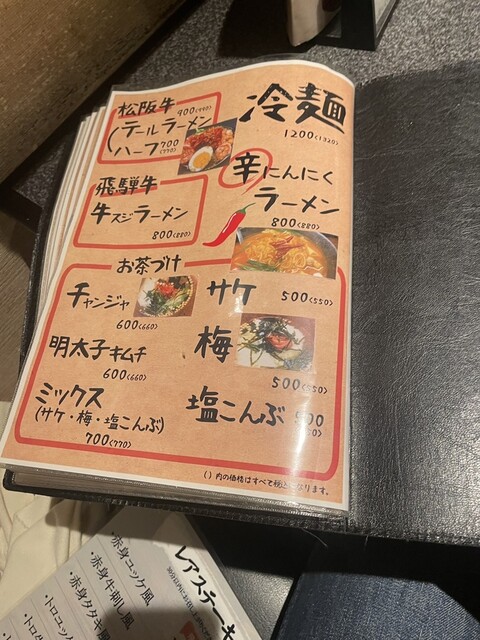 冷麺
1200(1320)
松阪牛
900(990)
テールラーメン
ハーフ 700
(770)
辛にんにく
ラーメン
800(880)
飛騨牛
牛スジラーメン
800(880)
お茶づけ
チャンジャ
600(660)
サケ 500(550)
明太子キムチ
600(660)
梅
500(550)
ミックス
(サケ・梅・塩こんぶ)
700(770)
塩こんぶ
( )内の価格はすべて税込となります。
レアステーキ
・赤身ユッケ風
・赤身牛刺し風
・赤身タタキ風